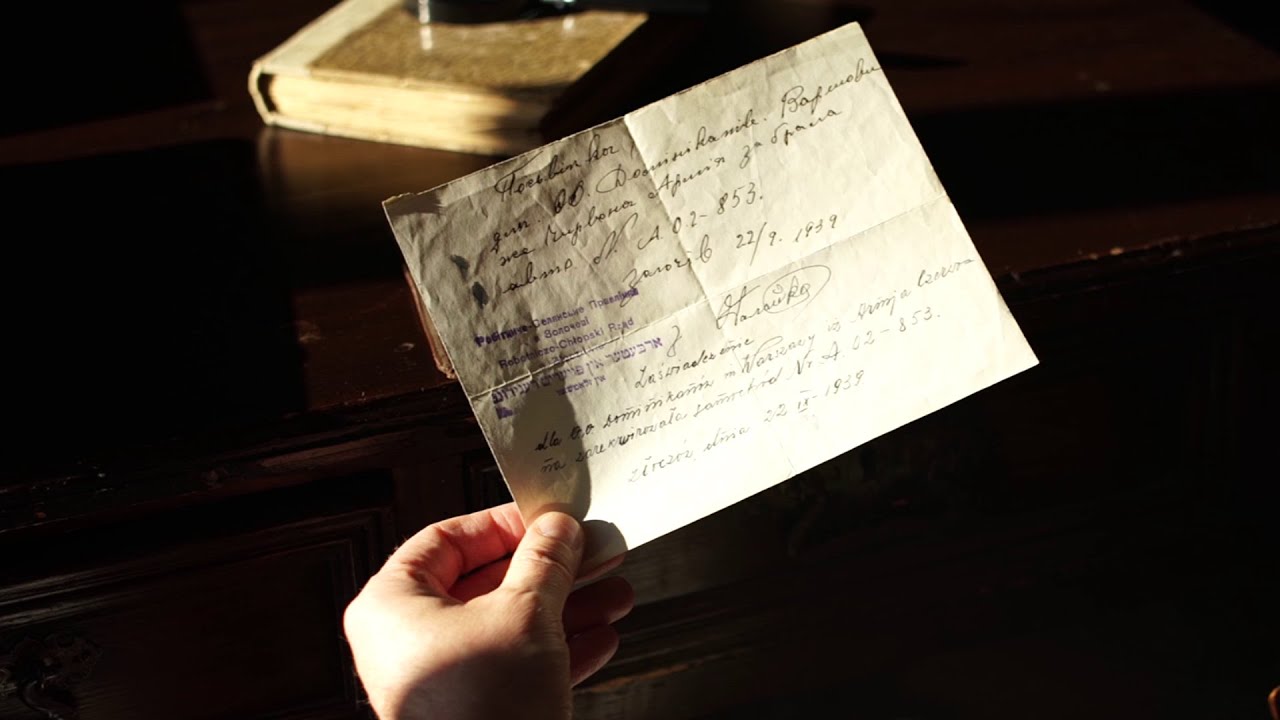 Посвітка
для. ОО. Домініканів. Варшови
же Червона Армія забрала
авто N. А 02-853.
Золочів 22/9. 1939
Робітниче-Селянське Правління
в Золочеві
Robotniczo-Chłopski Rząd
ארבעטער און פויערים
Zaświadczenie
dla OO Dominikanów w Warszawy iż Armja Czerwona
na zarekwirowała samochód Nr. A. 02-853.
Złoczów, dnia 22 IX - 1939